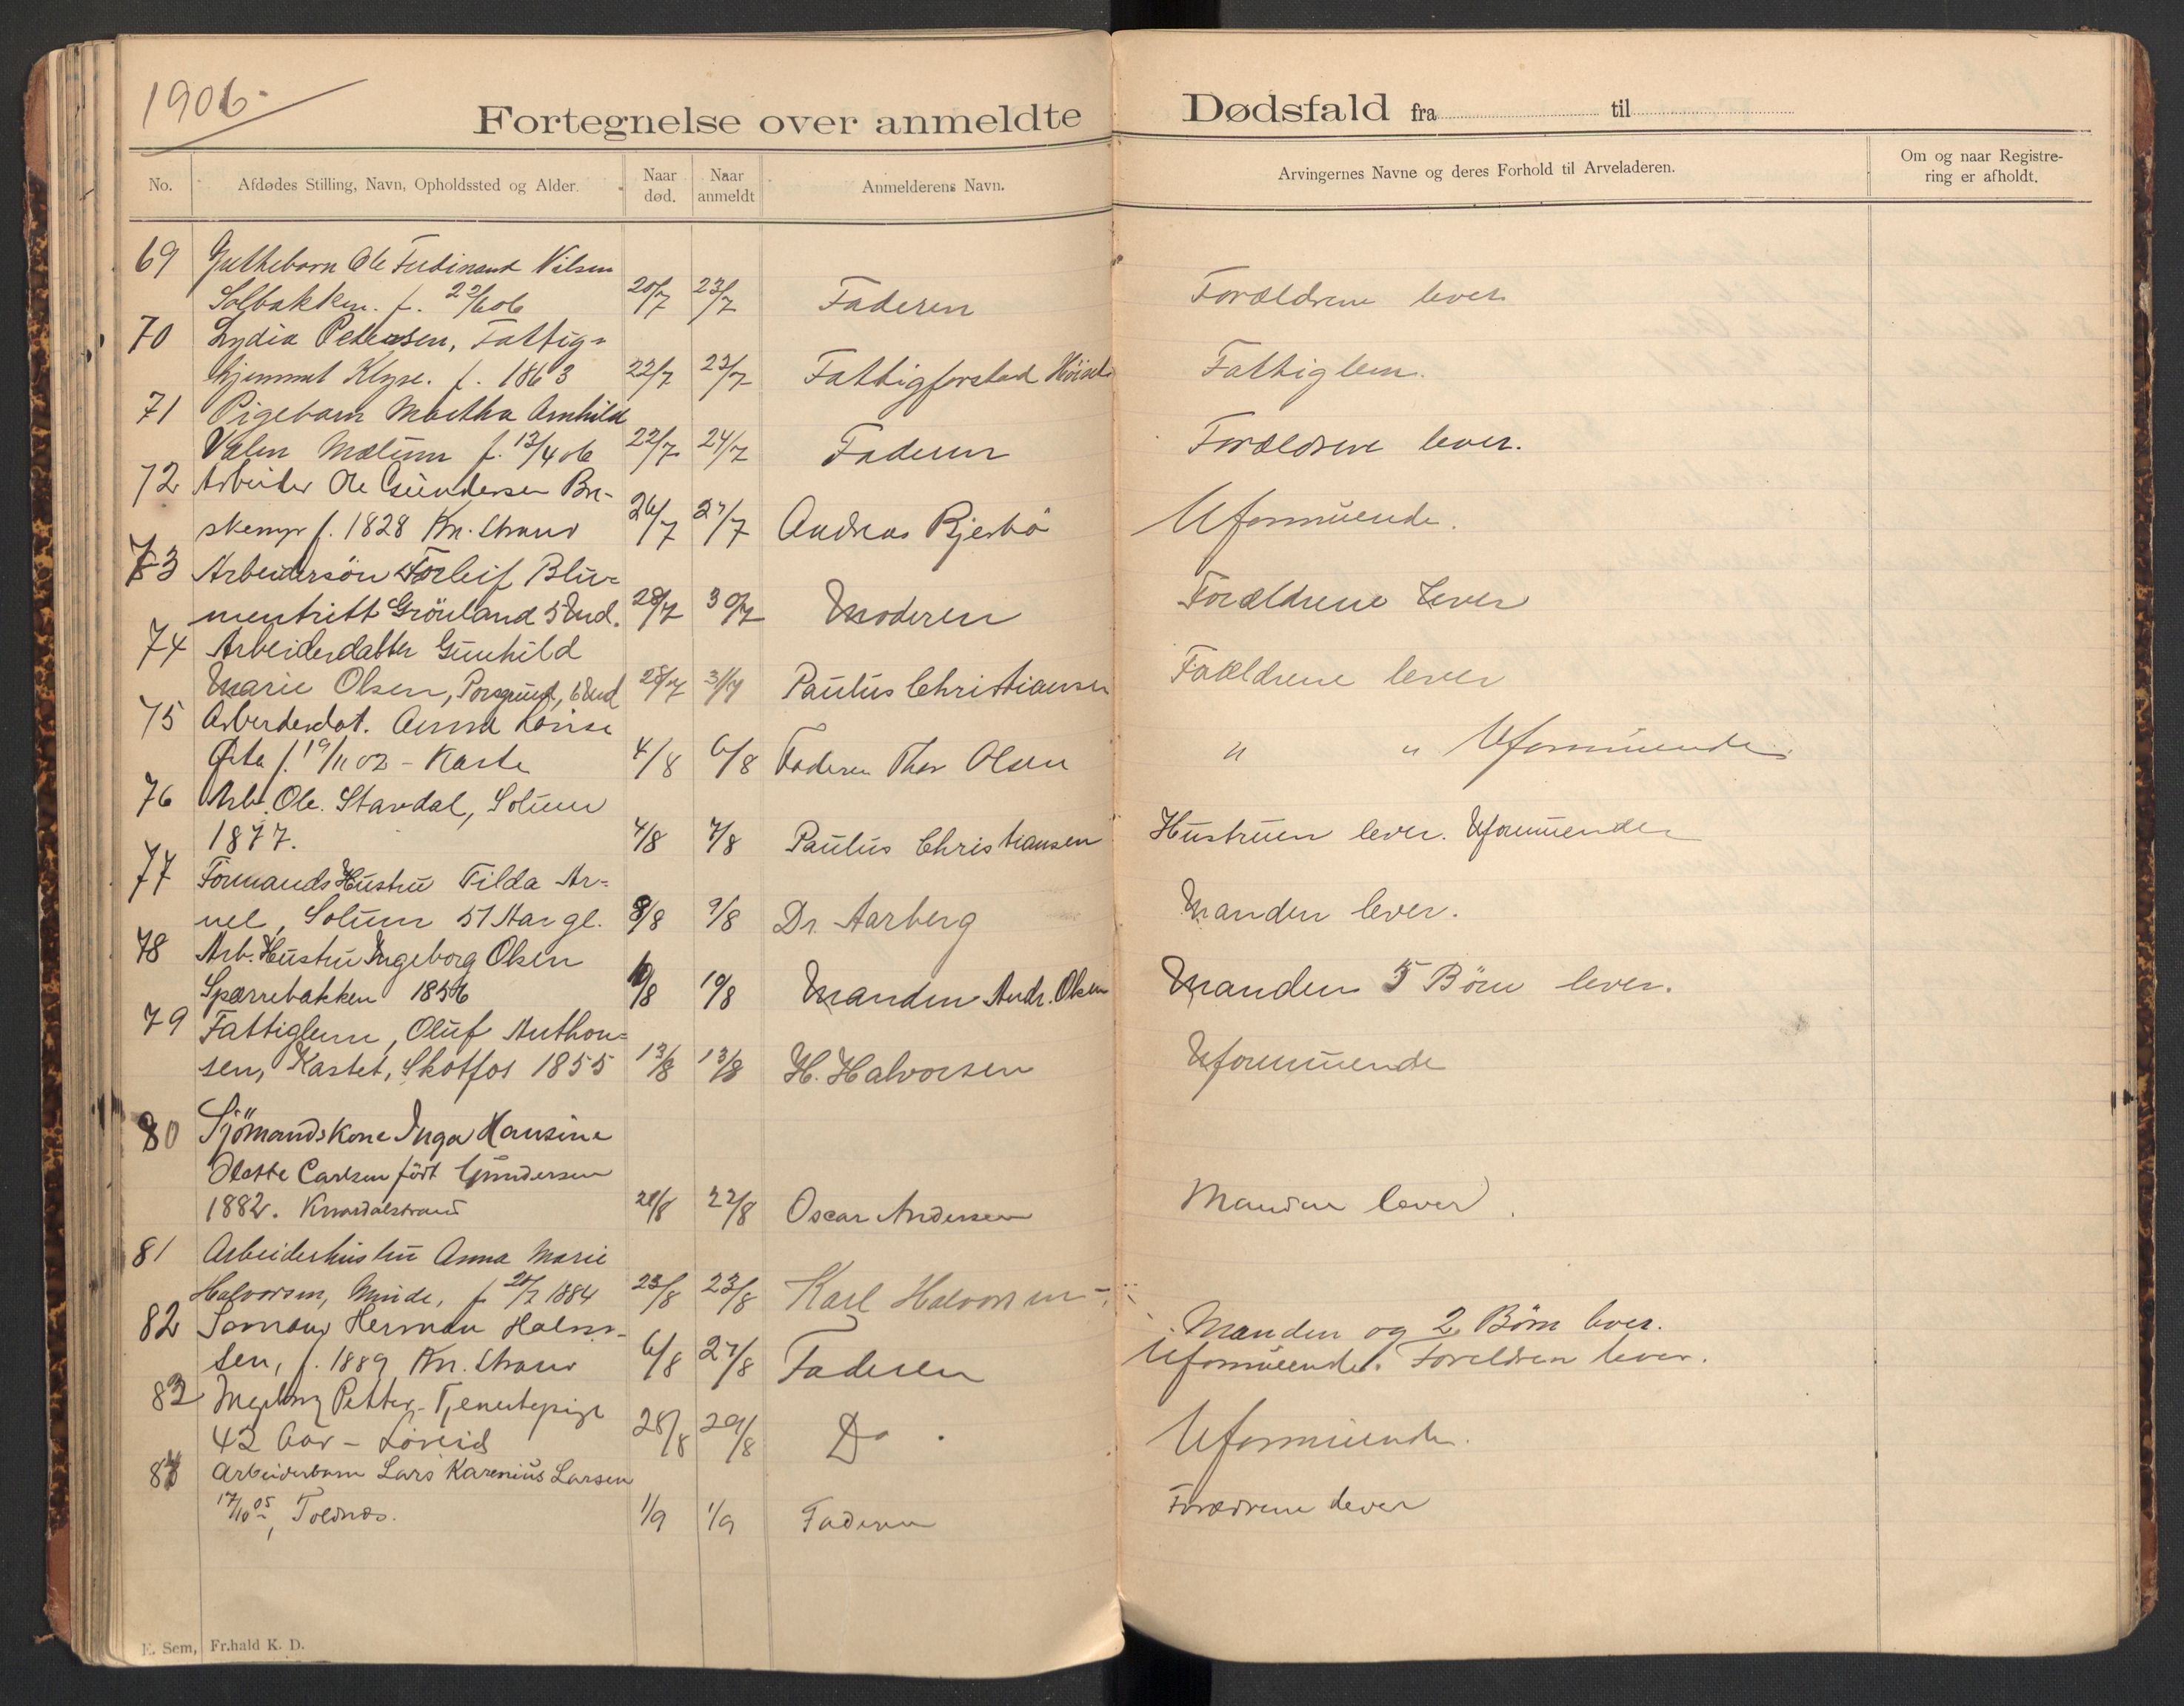 1906.
Fortegnelse over anmeldte Dødsfald fra til
No. Afdødes Stilling, Navn, Opholdssted og Alder. Naar død. Naar anmeldt Anmelderens Navn. Arvingernes Navne og deres Forhold til Arveladeren. Om og naar Registrering er afholdt.
69 Guttebarn Ole Ferdinand Nilsen
Solbakken. f. 22/6 06 20/7 23/7 Faderen Forældrene lever
70 Lydia Petersen, Fattig-
hjemmet Klyve. f. 1863 22/7 23/7 Fattigforstand Fattiglem.
71 Pigebarn Martha Arnhild
Valen Mælum f. 13/4 06 22/7 24/7 Faderen Forældrene lever.
72 Arbeider Ole Gundersen Bre-
skemyr f. 1828 Kn. Strand 26/7 27/7 Andreas Bjerbö Uformuende.
73 Arbeidersön Torleif Blu-
mentritt Grönland 5 Mnd. 28/7 30/7 Moderen Forældrene lever
74 Arbeiderdatter Gunhild
Marie Olsen, Porsgrund, 6 Mnd 28/7 31/7 Paulus Christiansen Forældrene lever
75 Arbeiderdat. Anna Lovise
f. 19/11 02 - 4/8 6/8 Faderen Thor Olsen " " Uformuende.
76 Arb. Ole. Stavdal, Solum
1877. 4/8 7/8 Paulus Christiansen Hustruen lever. Uformuende
77 Formands Hustru Tilda Ar-
nel, Solum 51 Aar gl. 8/8 9/8 Dr. Aarberg Manden lever.
78 Arb. Hustru Ingeborg Olsen
Sparrebakken 1856 10/8 10/8 Manden Andr. Olsen Manden 5 Börn lever.
79 Fattiglem, Oluf Anthon-
sen, Kastet, Skotfos 1855 13/8 13/8 H. Halvorsen Uformuende
80 Sjömandskone Inga Hansine
Olette Carlsen födt Gundersen
1882. Knardalstrand 20/8 22/8 Oscar Andersen Manden lever.
81 Arbeiderhustru Anna Marie
Halvorsen, Minde, f 20/7 1884 23/8 23/8 Karl Halvorsen - Manden og 2 Börn lever.
82 Sömand Herman Halvor-
sen, f. 1889 Kn. Strand 6/8 27/8 Faderen Uformuende. Foreldren lever.
83 Petter - Tjenestepige
42 Aar - Löveid 28/8 29/8 Do. Uformuende.
84 Arbeiderbarn Lars Karenius Larsen
17/10 05, Toldnæs. 1/9 1/9 Faderen Forældrene lever
E. Sem, Fr.hald K. D.